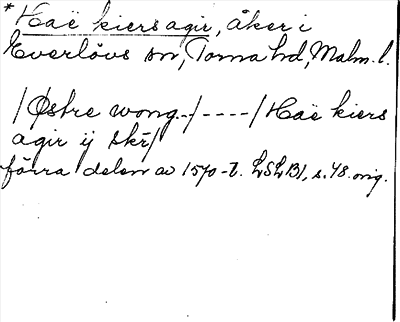 *Haë kiers agir, åker i
Everlövs sn, Torna hd, Malm. l.
/Østre wong../----/Haë kiers
agir ij skr̄/
förra delen av 1570-t. LSLB1, s. 48. orig.